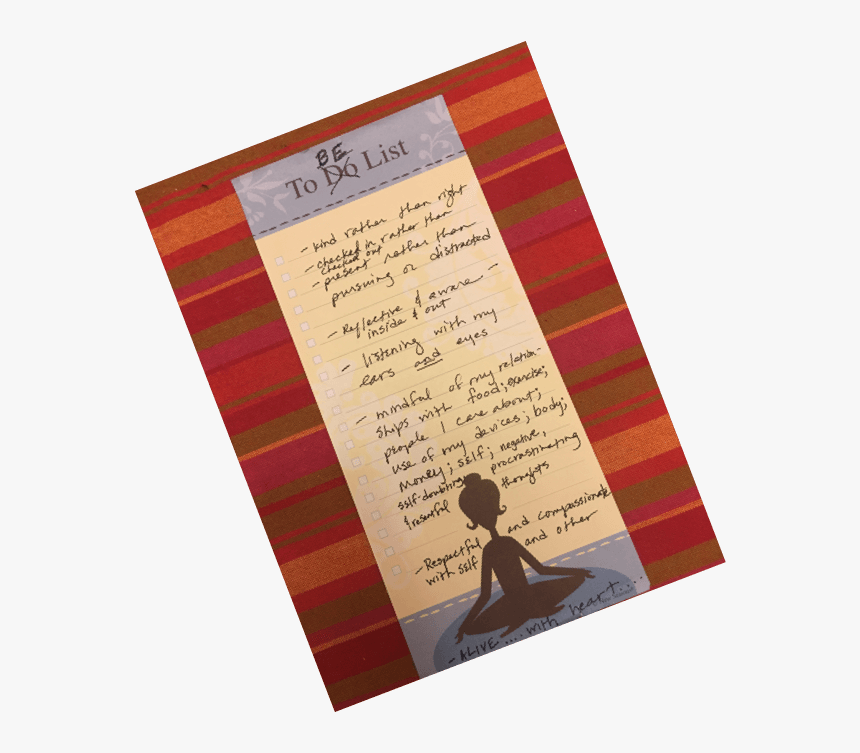 BE
To Do List
- kind rather than right
- checked in rather than
checked out
- present rather than
pursuing or distracted
- Reflective & aware -
inside & out
- listening with my
ears and eyes
- mindful of my relation-
ships with food; exercise;
people I care about;
use of my devices; body;
money; self; negative,
self-doubting, procrastinating
& resentful thoughts
- Respectful and compassionate
with self and other
- ALIVE .... with heart....